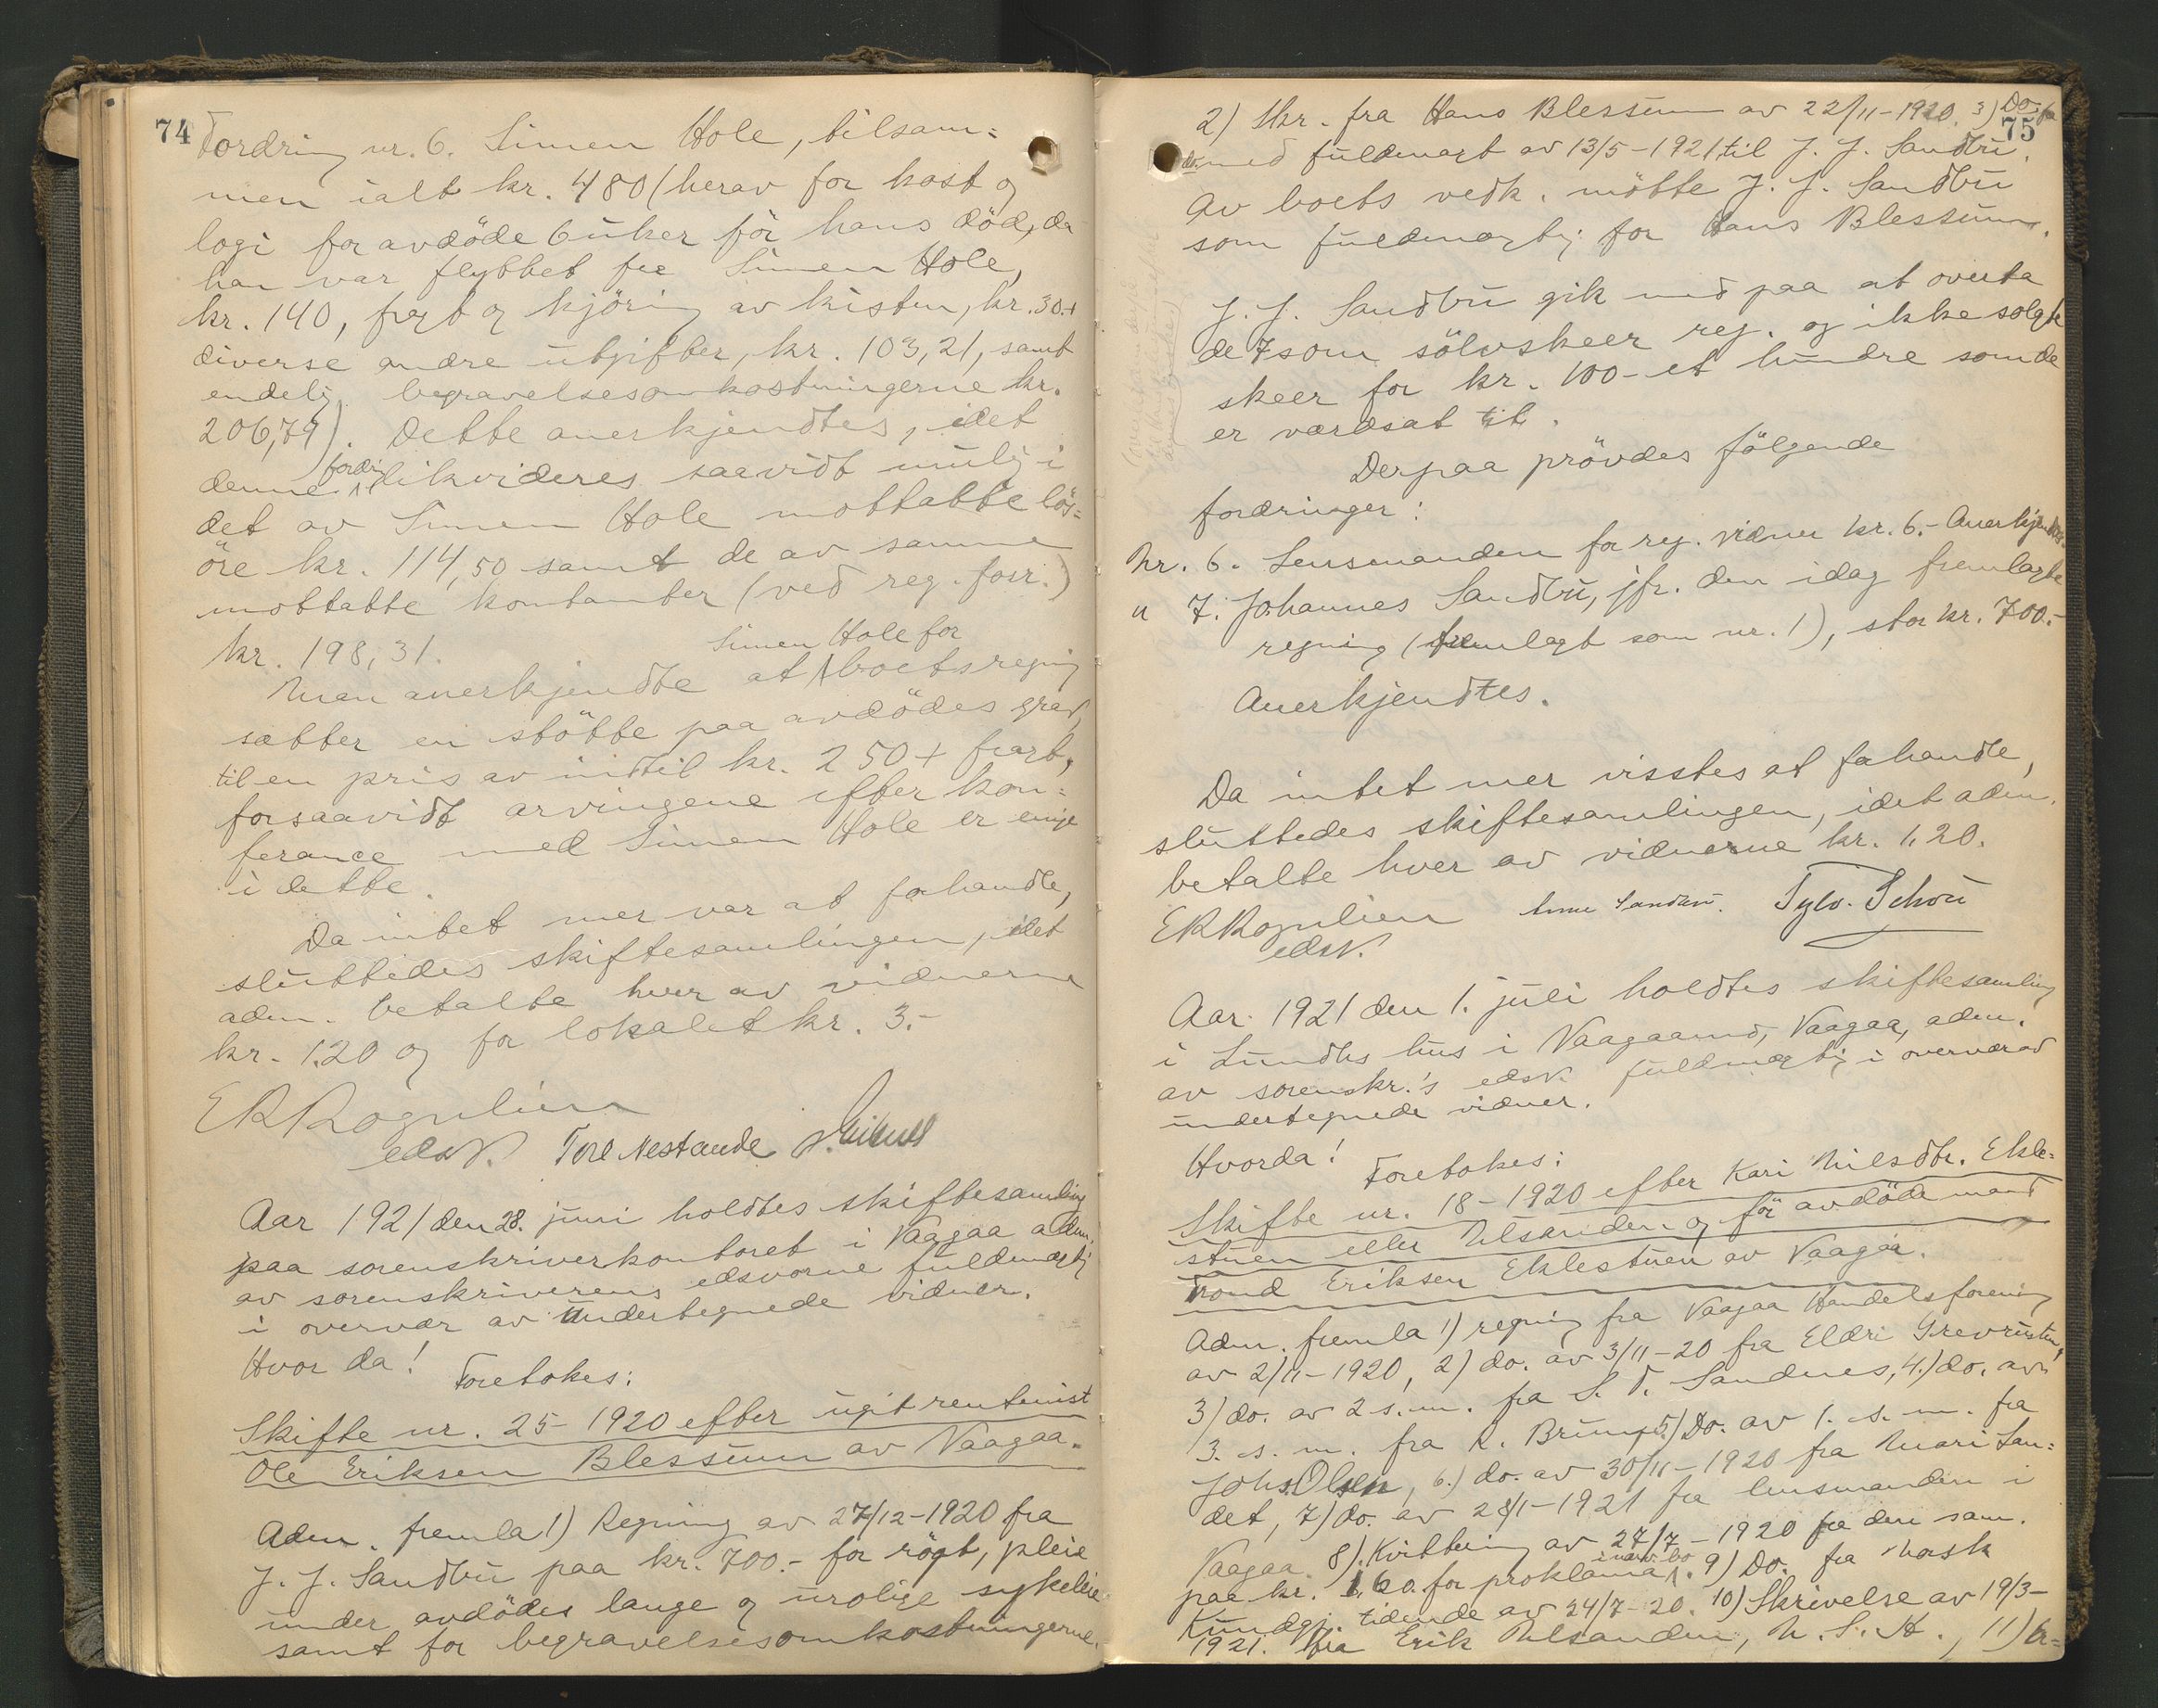 74
Fordring nr. 6. Simen Hole, tilsam=
men ialt kr. 480 (herav for kost og
logi for avdöde 6 uker för hans död, da
han var flyttet fra Simen Hole,
kr. 140, fragt og kjöring av kisten, kr. 30.+
diverse andre utgifter, kr. 103,21, samt
endelig begravelsesomkostningerne kr.
206,79). Dette anerkjendtes, idet
denne fordr. likvideres saavidt mulig i
det av Simen Hole mottatte lös=
öre kr. 114,50 samt de av samme
mottatte kontanter (ved reg. forr.)
kr. 198,31.
Man anerkjendte at Simen Hole for boets regning
sætter en stötte paa avdödes grav,
til en pris av indtil kr. 250 + fragt,
forsaavidt arvingene efter kon=
ferance med Simen Hole er enige
i dette.
Da intet mer var at forhandle,
sluttedes skiftesamlingen, idet
adm. betalte hver av vidnerne
kr. 1.20 og for lokalet kr. 3.-
E R Rognlien
edsv. Tore Nestande
Aar 1921 den 28. juni holdtes skiftesamling
paa sorenskriverkontoret i Vaagaa adm.
av sorenskriverens edsvorne fuldmægtig
i overvær av undertegnede vidner.
Hvor da!
Foretokes:
Skifte nr. 25-1920 efter ugift rentenist
Ole Eriksen Blessum av Vaagaa.
Adm. fremla 1) Regning av 27/12-1920 fra
J. J. Sandbu paa kr. 700.- for rögt, pleie
under avdödes lange og urolige sykeleie
samt for begravelsesomkostningerne.
75
2) Skr. fra Hans Blessum av 22/11-1920. 3) Do. fra
do. med fuldmagt av 13/5-1921 til J. J. Sandbu.
Av boets vedk. mötte J. J. Sandbu
som fuldmægtig for Hans Blessum.
J. J. Sandbu gik med paa at overta
de 7 som sölvskeer reg. og ikke solgte
skeer for kr. 100- et hundre som de
er værdsat til.
Derpaa prövdes fölgende
fordringer:
Nr. 6. Lensmanden for reg. vidner kr. 6.- Anerkjendtes.
" 7. Johannes Sandbu, jfr. den idag fremlagte
regning (fremlagt som nr. 1), stor kr. 700.-
Anerkjendtes.
Da intet mer visstes at forhandle,
sluttedes skiftesamlingen, idet adm.
betalte hver av vidnerne kr. 1.20.
E R Rognlien Anne Sandbu. Sylv. Schou
edsv.
Aar 1921 den 1. juli holdtes skiftesamling
i Lundhs hus i Vaagaamo, Vaagaa, adm.
av sorenskr.'s edsv. fuldmægtig i overvær av
undertegnede vidner.
Hvorda!
Foretokes:
Skifte nr. 18-1920 efter Kari Nilsdtr. Ekle=
stuen eller Ulsanden og för avdöde mand
Trond Eriksen Eklestuen av Vaagaa.
Adm. fremla 1) regning fra Vaagaa Handelsforening
av 2/11-1920, 2) do. av 3/11-20 fra Eldri Grevrusten,
3) do. av 2 s. m. fra S. T. Sandnes, 4.) do. av
3. s. m. fra K. Brun, 5) Do. av 1. s. m. fra
Johs. Olsen, 6.) do. av 30/11-1920 fra Mari San=
det, 7) do. av 28/1-1921 fra lensmanden i
Vaagaa. 8). Kvittering av 27/7-1920 fra den sam.
paa kr. 1.60. for proklama i nærv. bo. 9) Do. fra Norsk
Kundgj. tidende av 24/7-20. 10) Skrivelse av 19/3-
1921. fra Erik Ulsanden, U. S. A., 11) Er=